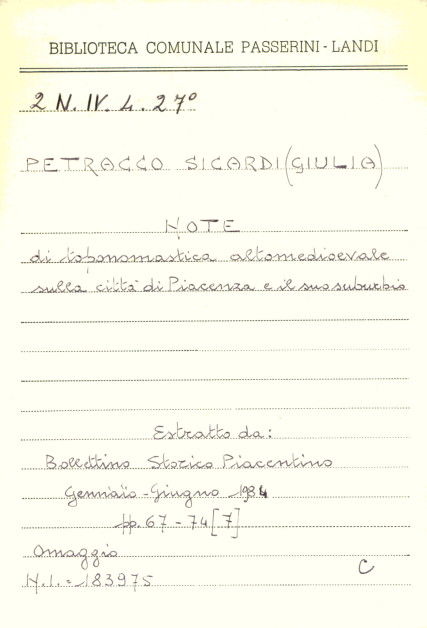 BIBLIOTECA COMUNALE PASSERINI-LANDI
2 N. IV. 4. 27°
PETRACCO SICARDI (GIULIA)
NOTE
di toponomastica altomedioevale
sulla città di Piacenza e il suo suburbio
Estratto da:
Bollettino Storico Piacentino
Gennaio-Giugno 1984
pp. 67-74 [7]
Omaggio
N.I. = 183975
C